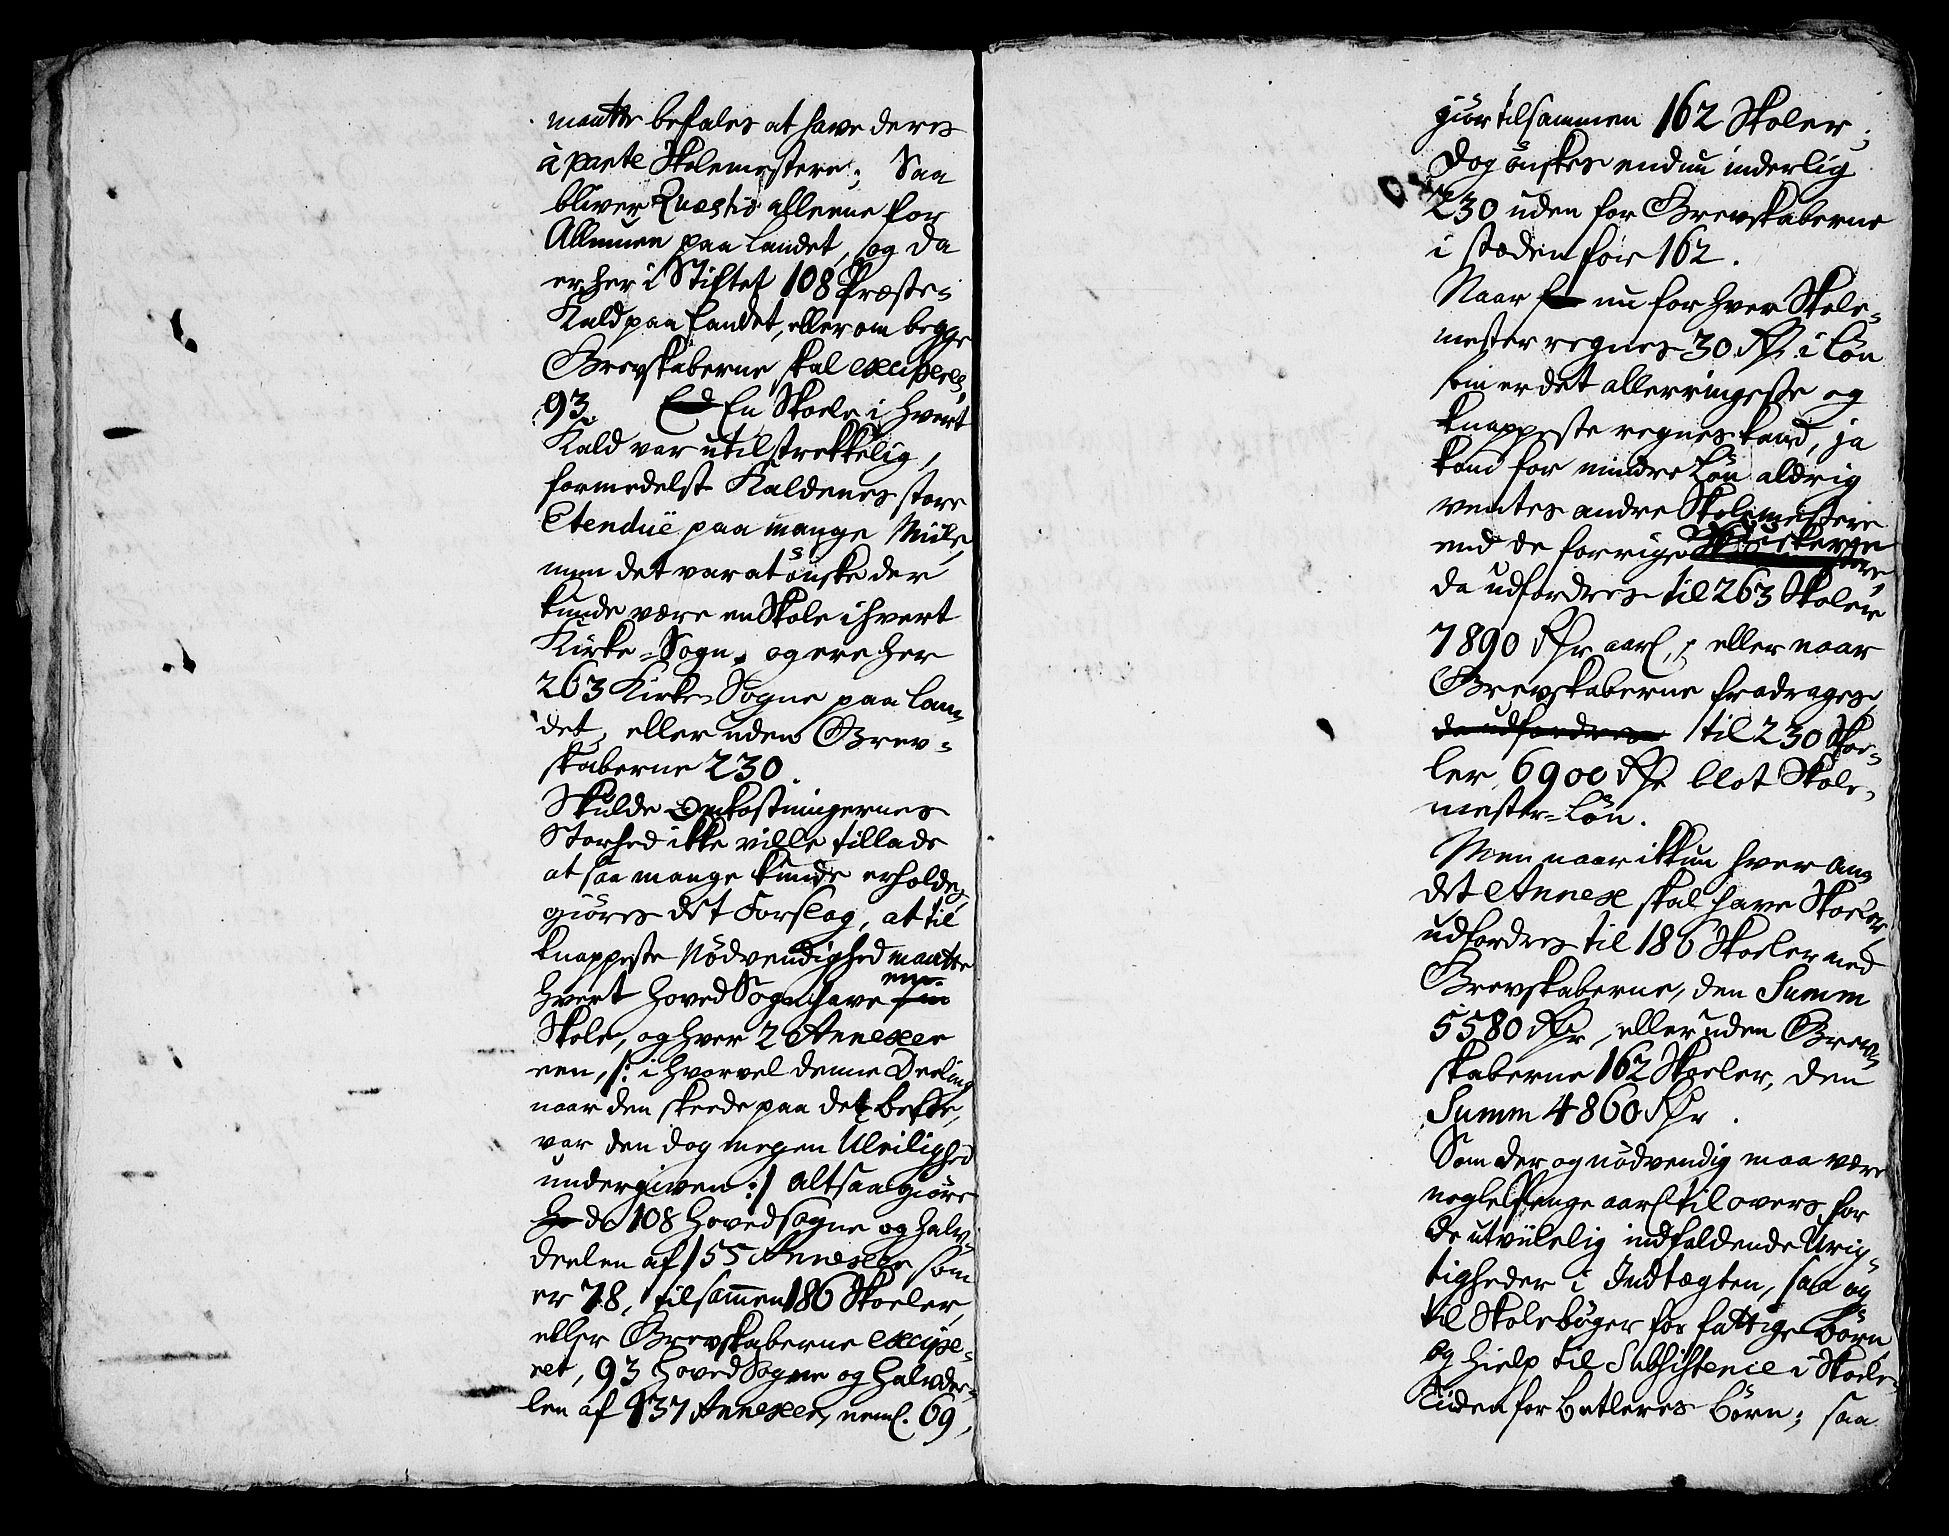 maatte befales at have deres
à parte Skolemestere; Saa
bliver Quæstio alleene for
Allmuen paa Landet, og da
er her i Stiftet 108 Præste-
Kald paa Landet, eller om begge
Grevskaberne skal exciperes,
93. En Skoele i hvert
Kald var utilstrekkelig,
formedelst Kaldenes store
Etenduë paa mange Miile,
men det var at önske der
kunde være en Skole i hvert
Kirke-Sogn, og ere her
263 Kirke-Sogne paa Lan-
det, eller uden Grev-
skaberne 230.
Skulde Omkostningernes
Storhed ikke ville tillade
at saa mange kunde erholdes,
giöres det Forslag, at til
knappeste Nödvendighed maatte
hvert Hoved Sogn have een
Skole, og hver 2 Annexer
een, /: i hvorvel denne Deeling
naar den skeede paa det beste,
var den dog megen Uleilighed
undergiven :/ altsaa giöre
de 108 Hovedsogne og halv-
deelen af 155 Annexer som
er 78, tilsammen 186 Skoeler,
eller Grevskaberne excipe-
ret, 93 Hoved Sogne og halvdee-
len af 137 Annexer, neml. 69,
giör tilsammen 162 Skoler;
Dog önskes endnu inderlig
230 uden for Grevskaberne
i stæden for 162.
Naar nu for hver Skole-
mester regnes 30 Rdr. i Lön
som er det allerringeste og
knappeste regnes kand, ja
kand for mindre Lön aldrig
ventes andre Skolemestere
end de forrige
da udfordres til 263 Skoler
7890 Rdr aarl., eller naar
Grevskaberne fradrages,
da udfordres til 230 Skoe-
ler 6900 Rdr blot Skole-
mester-Lön.
Men naar ikkun hver an-
det Annex skal have Skoeler,
udfordres til 186 Skoeler med
Grevskaberne, den Summ
5580 Rdr, eller uden Grev-
skaberne 162 Skoeler, den
Summ 4860 Rdr.
Som der og nödvendig maa være
nogle Penge aarl. til overs for
de utvivlelig indfaldende Urig-
tigheder i Indtægten, saa og
til Skoleböger for fattige Börn
og Hielp til Subsistence i Skole-
Tiden for Betleres Börn; saa